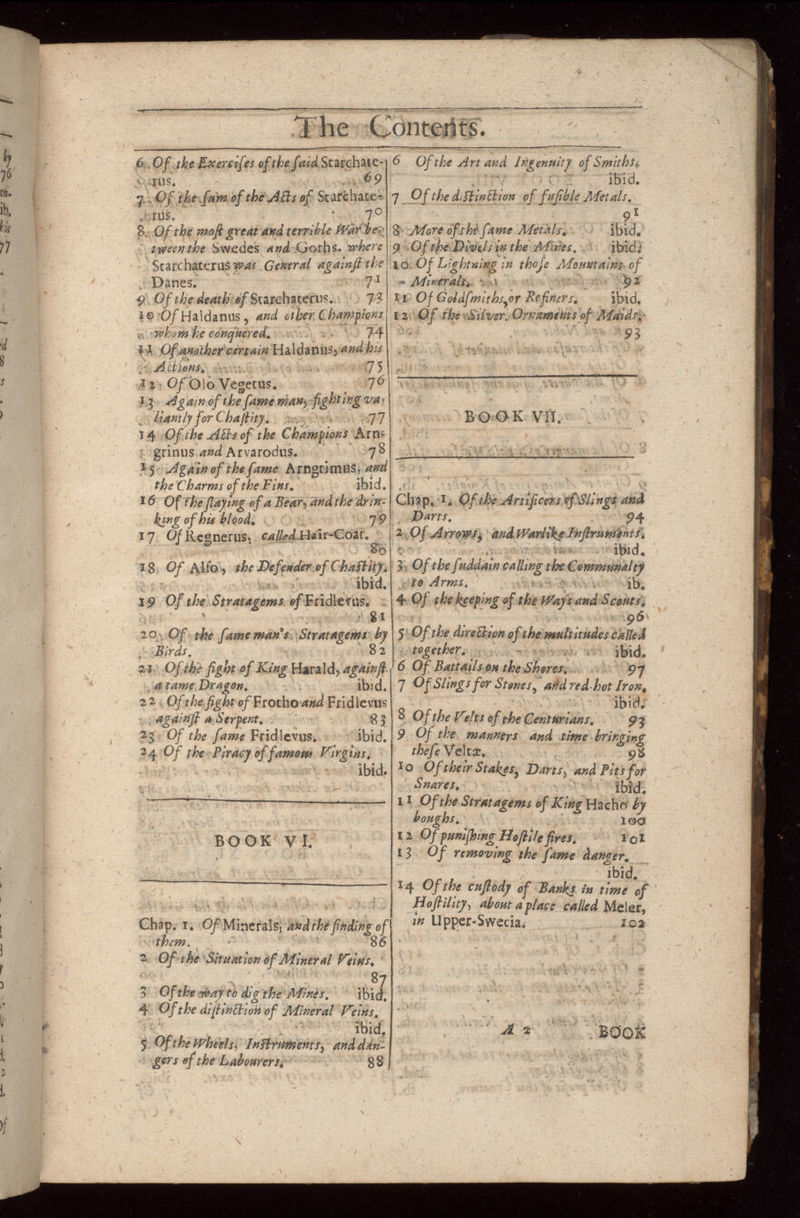 The Contents.
6. Of the Exercises of the said Starchate-
rus. 69
7. Of the sum of the Acts of Starchate-
rus. 70
8. Of the most great and terrible War be-
tween the Swedes and Goths, where
Starchaterus was General against the
Danes. 71
9 Of the death of Starchaterus. 73
10 Of Haldanus, and other Champions
whom he conquered. 74
11 Of another certain Haldanus, and his
Actions. 75
12 Of Olo Vegetus. 76
13 Again of the same man, fighting va-
liantly for Chastity. 77
14 Of the Acts of the Champions Arn-
grinus and Arvarodus. 78
15 Again of the same Arngrimus, and
the Charms of the Fins. ibid.
16 Of the slaying of a Bear, and the drin-
king of his blood. 79
17 Of Regnerus, called Hair-Coat.
80
18 Of Alfo, the Defender of Chastity.
ibid.
19 Of the Stratagems of Fridlevus.
81
20 Of the same man's Stratagems by
Birds. 82
21 Of the fight of King Harald, against
a tame Dragon. ibid.
22 Of the fight of Frotho and Fridlevus
against a Serpent. 83
23 Of the same Fridlevus. ibid.
24 Of the Piracy of famous Virgins.
ibid.
BOOK VI.
Chap. 1. Of Minerals, and the finding of
them. 86
2 Of the Situation of Mineral Veins.
87
3 Of the way to dig the Mines. ibid.
4 Of the distinction of Mineral Veins.
ibid.
5 Of the Wheels, Instruments, and dan-
gers of the Labourers. 88
6 Of the Art and Ingenuity of Smiths.
ibid.
7 Of the distinction of fusible Metals.
91
8 More of the same Metals. ibid.
9 Of the Divels in the Mines. ibid.
10 Of Lightning in those Mountains of
Minerals. 92
11 Of Goldsmiths, or Refiners. ibid.
12 Of the Silver Ornaments of Maids.
93
BOOK VII.
Chap. 1. Of the Artificers of Slings and
Darts. 94
2 Of Arrows, and Warlike Instruments.
ibid.
3 Of the suddain calling the Communalty
to Arms. ib.
4 Of the keeping of the Ways and Scouts.
96
5 Of the direction of the multitudes called
together. ibid.
6 Of Battails on the Shores. 97
7 Of Slings for Stones, and red-hot Iron.
ibid.
8 Of the Velts of the Centurians. 93
9 Of the manners and time bringing
these Veltæ. 98
10 Of their Stakes, Darts, and Pits for
Snares. ibid.
11 Of the Stratagems of King Hacho by
boughs. 100
12 Of punishing Hostile fires. 101
13 Of removing the same danger.
ibid.
14 Of the custody of Banks in time of
Hostility, about a place called Meler,
in Upper-Swecia. 102
A 2 BOOK
by
76
ib.
his
77